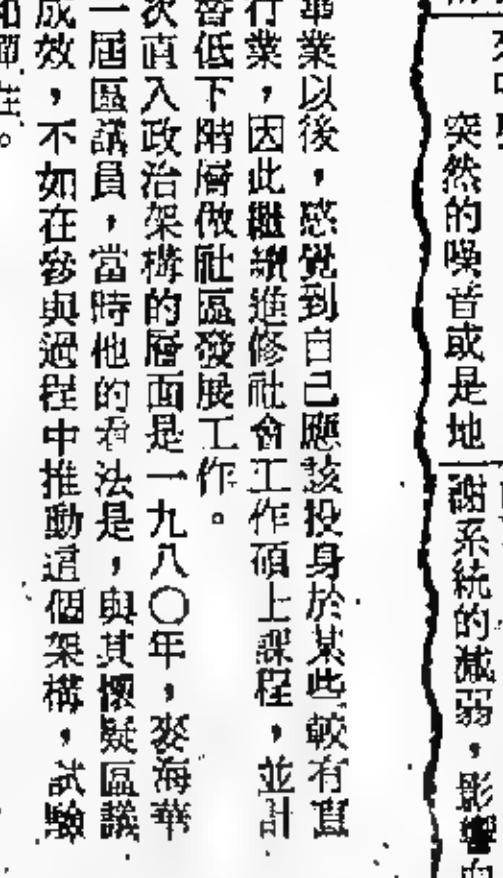 突然的噪音或是地
謝系統的減弱，影響
畢業以後，感覺到自己應該投身於某些較有直
行業，因此繼續進修社會工作碩士課程，並計
替低下階層做社區發展工作。
次直入政治架構的層面是一九八〇年，麥海華
一屆區議員，當時他的看法是，與其懷疑區議
成效，不如在參與過程中推動這個架構，試驗
和彈性。